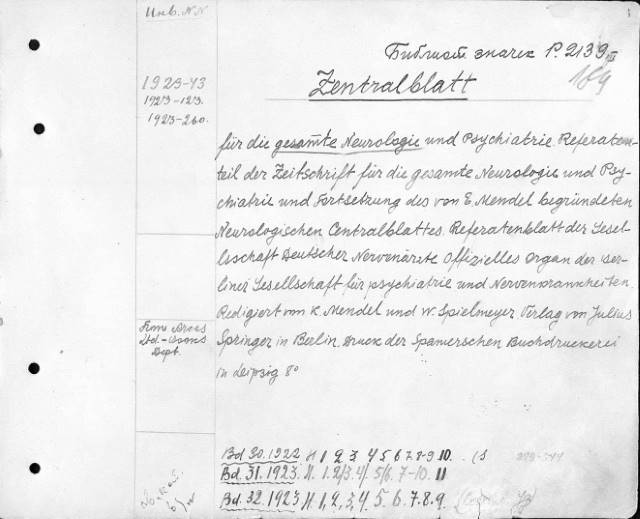 Инв. N.N
Библиот. значек P. 2139 III
184
Zentralblatt
1923-43
1923-123.
1923-260.
für die gesamte Neurologie und Psychiatrie. Referaten-
teil der Zeitschrift für die gesamte Neurologie und Psy-
chiatrie und Fortsetzung des von E. Mendel begründeten
Neurologischen Centralblattes. Referatenblatt der Gesel-
lsschaft Deutscher Nervenärzte Offizielles Organ der Ber-
liner Gesellschaft für psychiatrie und Nervenkrankheiten.
Redigiert von K. Mendel und W. Spielmeyer Verlag von Julius
Springer in Berlin. Druck der Spamerschen Buchdruckerei
in Leipzig 8°
Dept.
Bd 30. 1922 H 1, 2, 3, 4 5 6. 7. 8-9 10.
Bd. 31. 1923. H. 1. 2/3. 4/. 5/6. 7-10. 11
Bd. 32. 1923 H 1, 2, 3, 4 5. 6. 7. 8. 9.